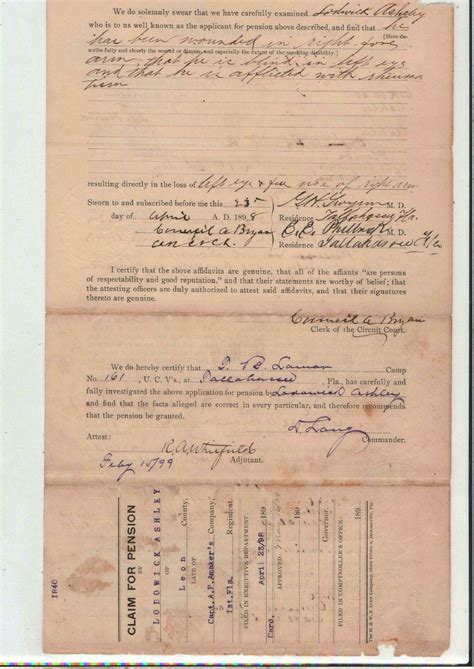 We do solemnly swear that we have carefully examined Lodwick Ashley
who is to us well known as the applicant for pension above described, and find that he
has been wounded in right fore
[Here de-
scribe fully and clearly the wound or disease, and especially the extent of the resulting disability.]
arm, that he is blind in left eye
and that he is afflicted with rheuma
tism
resulting directly in the loss of left eye & free use of right arm
Sworn to and subscribed before me this 25 M. D.
day of April A. D. 1898 Residence Tallahassee Fla.
Council A Bryan C. E. Philbrick M. D.
Clk C. C. Residence Tallahassee Fla
I certify that the above affidavits are genuine, that all of the affiants "are persons
of respectability and good reputation," and that their statements are worthy of belief; that
the attesting officers are duly authorized to attest said affidavits, and that their signatures
thereto are genuine.
Council A Bryan
Clerk of the Circuit Court.
We do hereby certify that Lamar Camp
No. 161, U. C. V's., at Tallahassee, Fla., has carefully and
fully investigated the above application for pension by Lodowick Ashley
and find that the facts alleged are correct in every particular, and therefore recommends
that the pension be granted.
D. Lang
Commander.
Attest:
R. A. Whitfield
Adjutant.
Feby 15/99
1840
CLAIM FOR PENSION
BY
LODOWICK ASHLEY
OF
Leon County,
LATE OF
Capt. A.P. Amaker's Company,
1st. Fla. Regiment.
FILED IN EXECUTIVE DEPARTMENT
April 23/98 189
APPROVED:
189
Card. Governor.
FILED IN COMPTROLLER'S OFFICE:
189